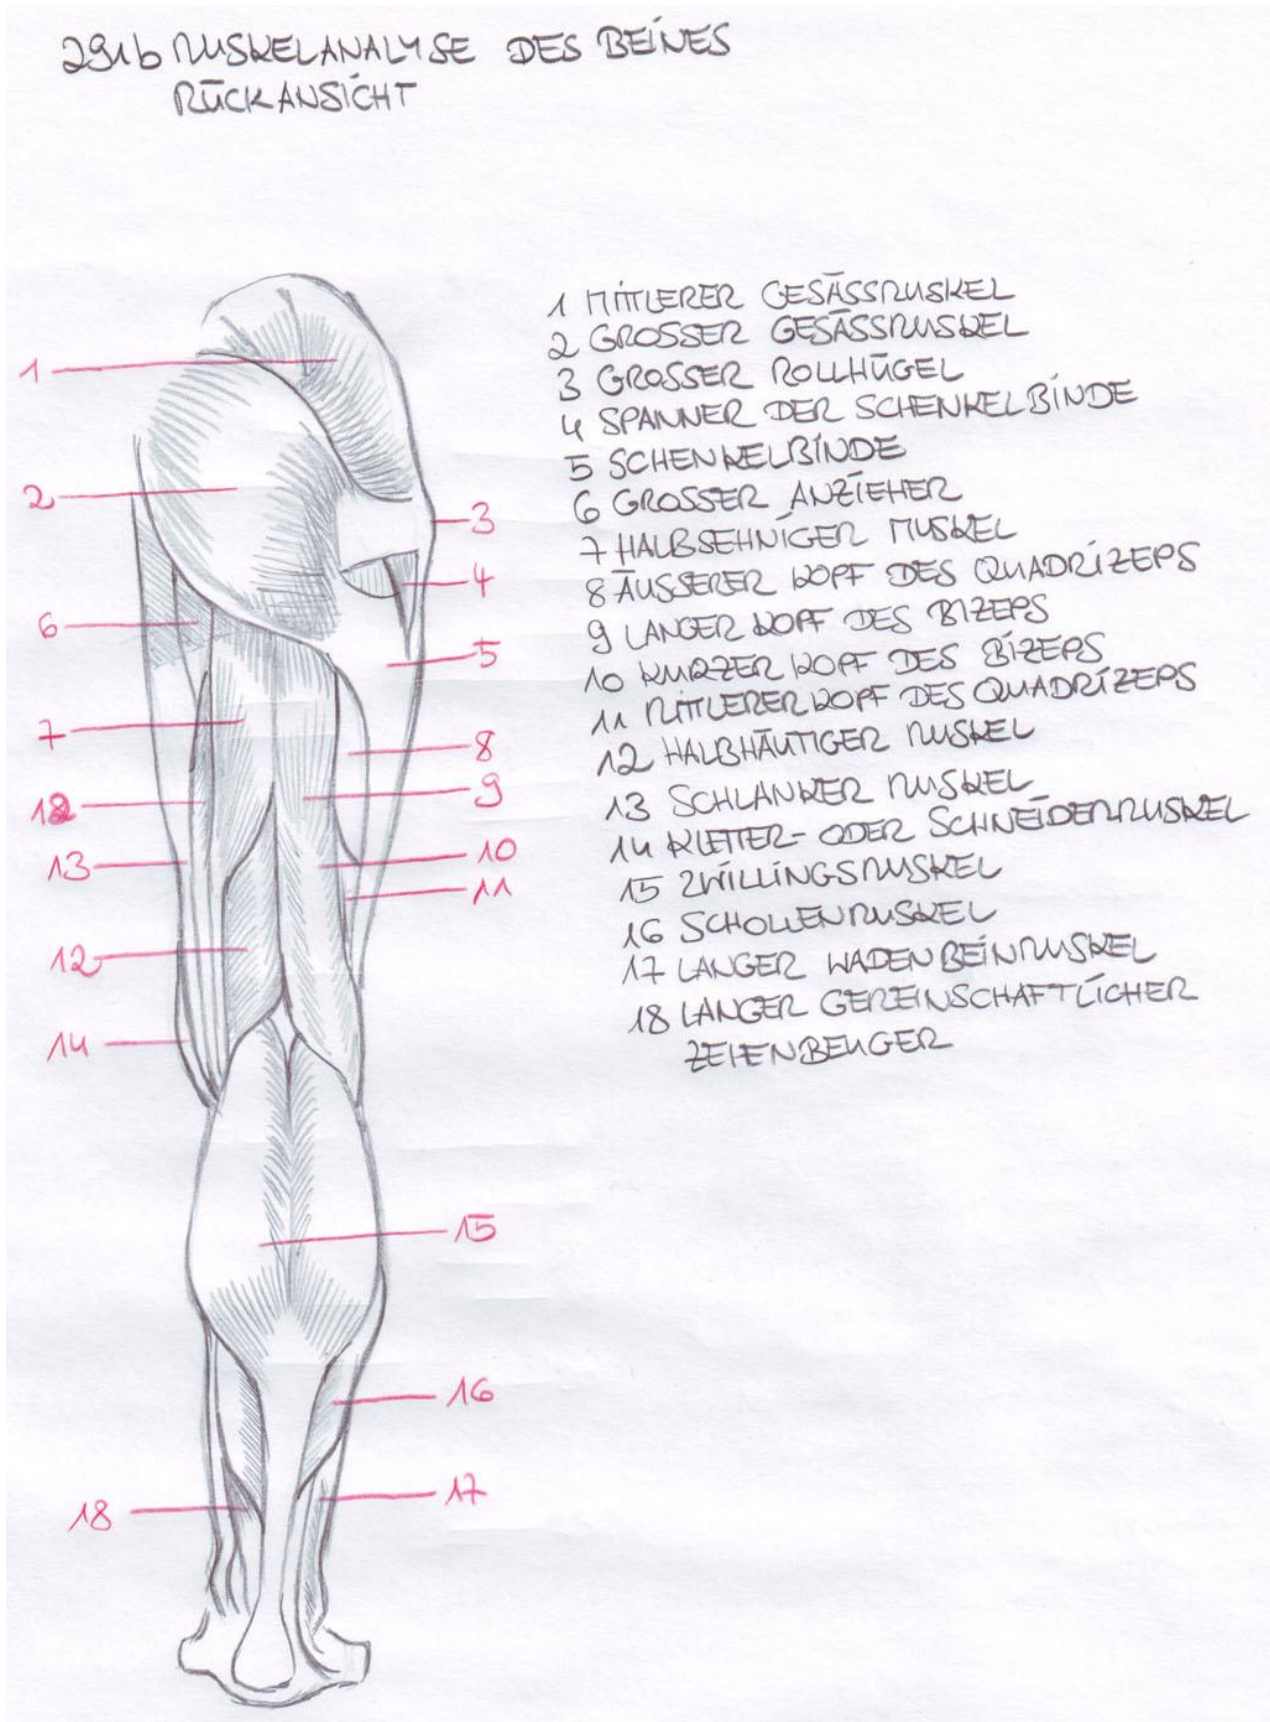 291b MUSKELANALYSE DES BEINES
RÜCKANSICHT
1 MITTLERER GESÄSSMUSKEL
2 GROSSER GESÄSSMUSKEL
3 GROSSER ROLLHÜGEL
4 SPANNER DER SCHENKELBINDE
5 SCHENKELBINDE
6 GROSSER ANZIEHER
7 HALBSEHNIGER MUSKEL
8 ÄUSSERER KOPF DES QUADRIZEPS
9 LANGER KOPF DES BIZEPS
10 KURZER KOPF DES BIZEPS
11 MITTLERER KOPF DES QUADRIZEPS
12 HALBHÄUTIGER MUSKEL
13 SCHLANKER MUSKEL
14 KLETTER- ODER SCHNEIDERMUSKEL
15 ZWILLINGSMUSKEL
16 SCHOLLENMUSKEL
17 LANGER WADENBEINMUSKEL
18 LANGER GEMEINSCHAFTLICHER
ZEHENBEUGER
1
2
3
4
6
5
7
8
9
12
10
13
11
12
14
15
16
17
18